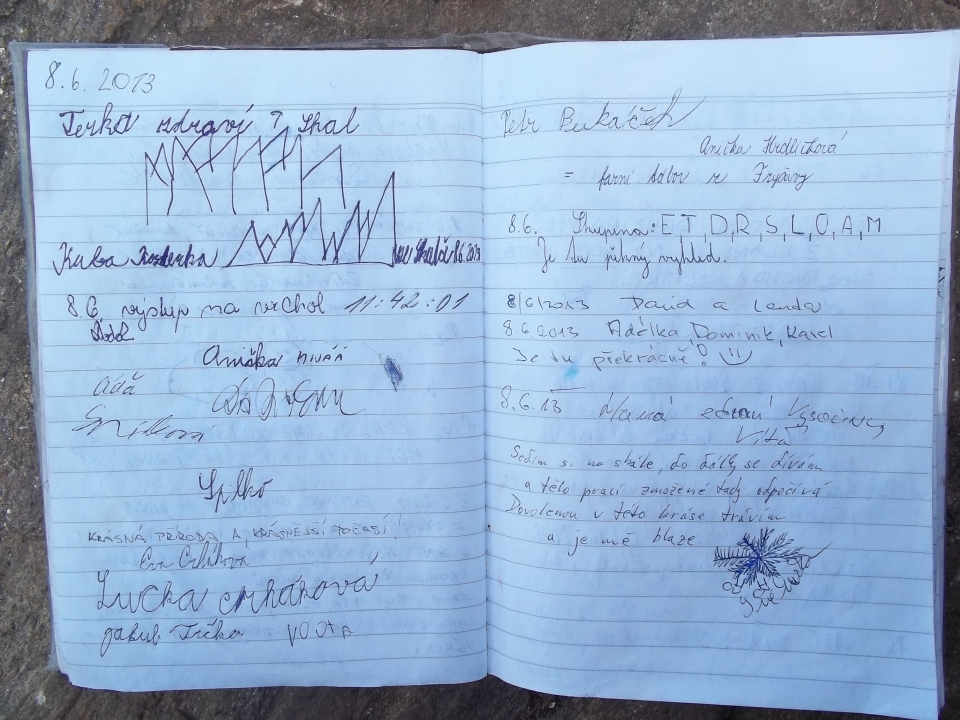 8.6. 2013
Terka zdraví 7 Skal
Kuba
8.6. výstup na vrchol 11:42:01
Anička
Áďa
KRÁSNÁ PŘÍRODA A KRÁSNĚJŠÍ POČASÍ!
Eva Crhákova
Lucka crhákova
jakub Trčka VOJTA
Petr Bukáček
Anička Hrdličková
= farní tábor z Fryšavy
8.6. Skupina: E T, D, R, S, L, O, A, M
Je tu pěkný výhled.
8/6/2013 David a Lenda
8.6.2013 Adélka, Dominik, Karel
Je tu překrásně!
8.6.13 zdraví Vysočiny
Víťa
Sedím si na skále, do dálky se dívám
a tělo prací zmožené tady odpočívá
Dovolenou v této kráse trávím
a je mě blaze